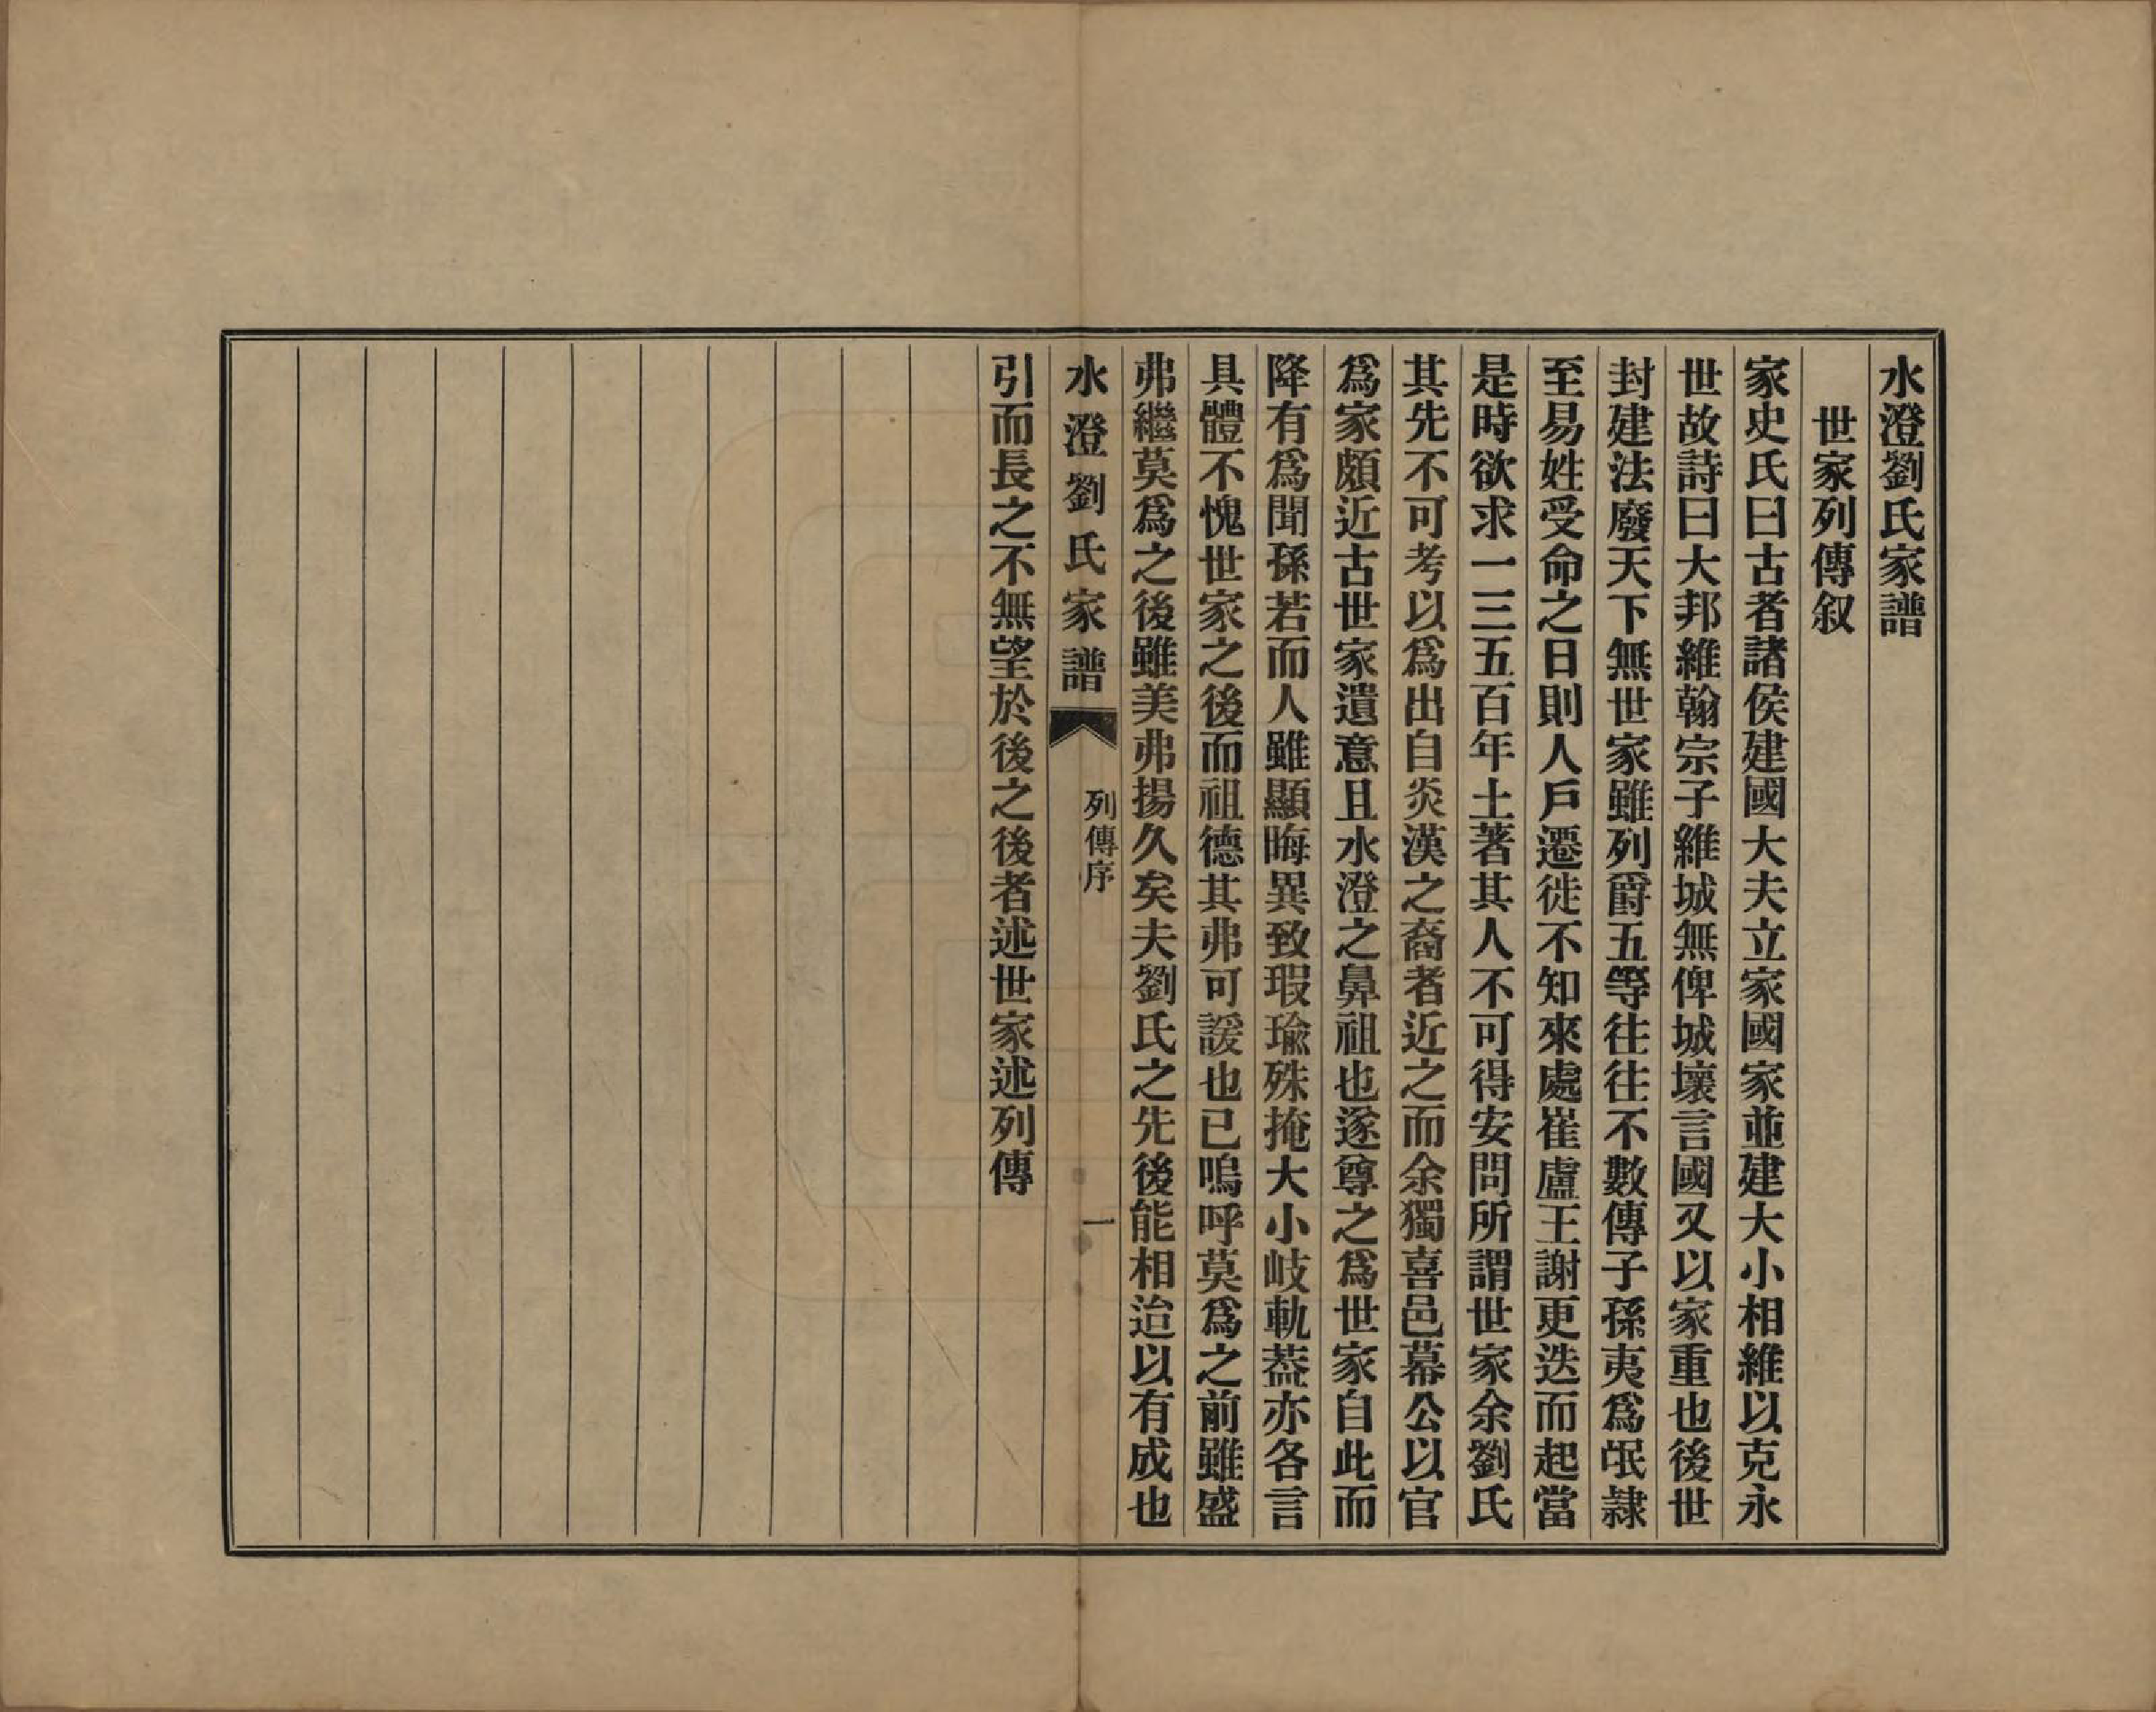 水澄劉氏家譜
世家列傳叙
家史氏曰古者諸侯建國大夫立家國家並建大小相維以克永
世故詩曰大邦維翰宗子維城無俾城壞言國又以家重也後世
封建法廢天下無世家雖列爵五等往往不數傳子孫夷爲氓隸
至易姓受命之日則人戶遷徙不知來處崔盧王謝更迭而起當
是時欲求一三五百年土著其人不可得安問所謂世家余劉氏
其先不可考以爲出自炎漢之裔者近之而余獨喜邑幕公以官
爲家頗近古世家遺意且水澄之鼻祖也遂尊之爲世家自此而
降有爲聞孫若而人雖顯晦異致瑕瑜殊掩大小岐軌葢亦各言
具體不愧世家之後而祖德其弗可諼也已嗚呼莫爲之前雖盛
弗繼莫爲之後雖美弗揚久矣夫劉氏之先後能相迨以有成也
水澄劉氏家譜 列傳序 一
引而長之不無望於後之後者述世家述列傳